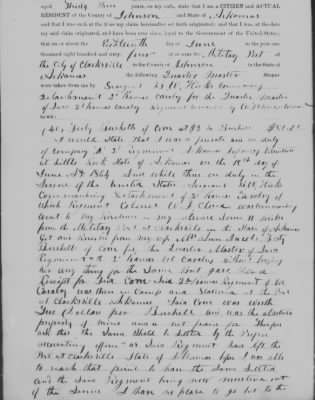 aged Thirty Three years, on my oath, state that I am a CITIZEN and ACTUAL
RESIDENT of the County of Johnson and State of Arkansas
and that I was such at the time my claim heretofore set forth originated; and that I was, at the date
my said claim originated, and have been ever since loyal to the Government of the United States;
that on or about the Eighteenth day of June in the year one
thousand eight hundred and sixty Four at or near the Military Post of
the City of Clarksville in the County of Johnson State of
Arkansas the following Quarter Master Stores
were taken from me by Hicks Commanding
Detachment 2d Kansas Cavalry for the Quarter Master
of Said 2d Kansas Cavalry Regiment
40, Forty Bushells of Corn at $2 Bushel
I would State that I was a private and on duty
of Company A 2d Regiment Arkansas Infantry
at Little Rock State of Arkansas on the 18th day of
June AD 1864 and while thus on duty in the
Service of the United States Sergeant Hicks
Commanding Detachment of 2d Kansas Cavalry of
which Regiment Colonel W F Cloud was Commanding
went to my Residence in my absence Some miles
from the Military Post at Clarksville in the State of Arkansas
Got and Received from my wife Forty
Bushells of Corn for the Quarter Master of Said
Regiment 2d Kansas Cavalry without paying
her any thing for the Same But gave her a
Receipt for Said Corn Said 2d Kansas Regiment
Cavalry was then in Camp and Stationed at the Post
at Clarksville Arkansas Said Corn was worth
Two Dollars per Bushell and was the absolute
property of mine and is not paid for Therefore
ask that the Same Should be Settled by the Proper
accounting officer as Said Regiment had left the
Post at Clarksville State of Arkansas before I was able
to reach that point to have the Same Settled
and the Said Regiment being now mustered out
of the Service I have no place to go but to the